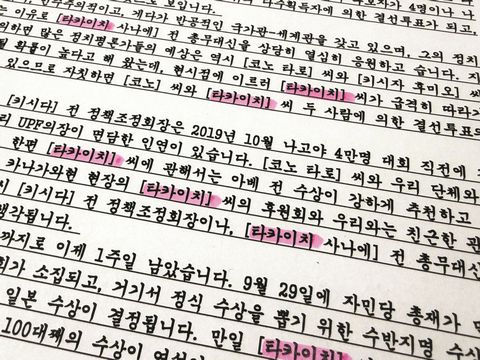 주의적이고, 게다가 반공적인 국가관-세계관을 갖고 있으며, 그의 정치
는 이유로 [타카이치 사나에] 전 총무대신을 상당히 열심히 응원하고 습니다. 지
의하면 많은 정치평론가들의 예상은 역시 [코노 타로] 씨와 [키시자 후미오] 씨
확률이 높다고 해 왔는데, 현시점에 이르러 [타카이치] 씨가 급격히 따라가
있으므로 자칫하면 [코노] 씨와 [타카이치] 씨 두 사람에 의한 결선투표의
[키시다] 전 정책조정회장은 2019년 10월 나고야 4만명 대회 직전에
리 UPF의장이 면담한 인연이 있습니다. [코노 타로] 씨와 우리 단체와
한편 [타카이치] 씨에 관해서는 아베 전 수상이 강하게 추천하고
카나가와현 현장의 [타카이치] 씨의 후원회와 우리와는 친근한 관
[키시다] 전 정책조정회장이나, [타카이치 사나에] 전 총무대신
생각됩니다.
까지로 이제 1주일 남았습니다. 9월 29일에 자민당 총재가
회가 소집되고, 거기서 정식 수상을 뽑기 위한 수반지명
일본 수상이 결정됩니다. 만일 [타카이치
100대째의 수상이